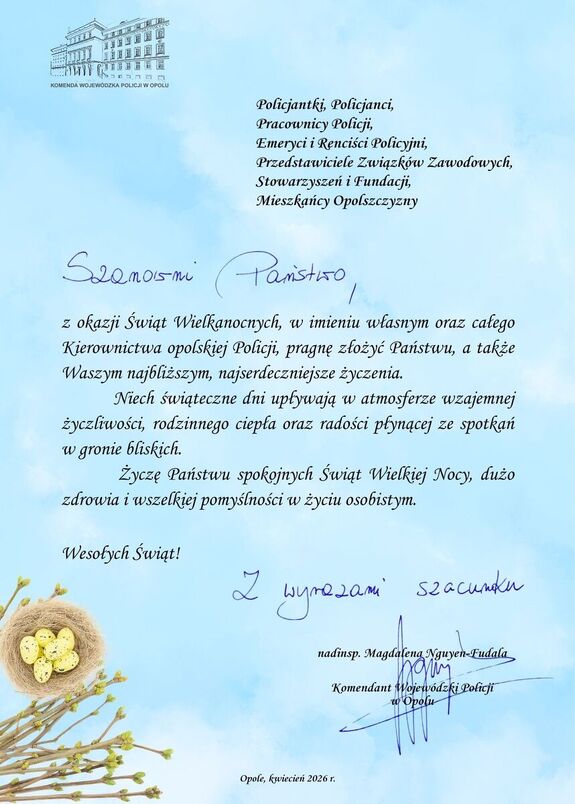 KOMENDA WOJEWÓDZKA POLICJI W OPOLU
Policjantki, Policjanci,
Pracownicy Policji,
Emeryci i Renciści Policyjni,
Przedstawiciele Związków Zawodowych,
Stowarzyszeń i Fundacji,
Mieszkańcy Opolszczyzny
Szanowni Państwo,
z okazji Świąt Wielkanocnych, w imieniu własnym oraz całego
Kierownictwa opolskiej Policji, pragnę złożyć Państwu, a także
Waszym najbliższym, najserdeczniejsze życzenia.
Niech świąteczne dni upływają w atmosferze wzajemnej
życzliwości, rodzinnego ciepła oraz radości płynącej ze spotkań
w gronie bliskich.
Życzę Państwu spokojnych Świąt Wielkiej Nocy, dużo
zdrowia i wszelkiej pomyślności w życiu osobistym.
Wesołych Świąt!
Z wyrazami szacunku
nadinsp. Magdalena Nguyen-Fudala
Komendant Wojewódzki Policji
w Opolu
Opole, kwiecień 2026 r.